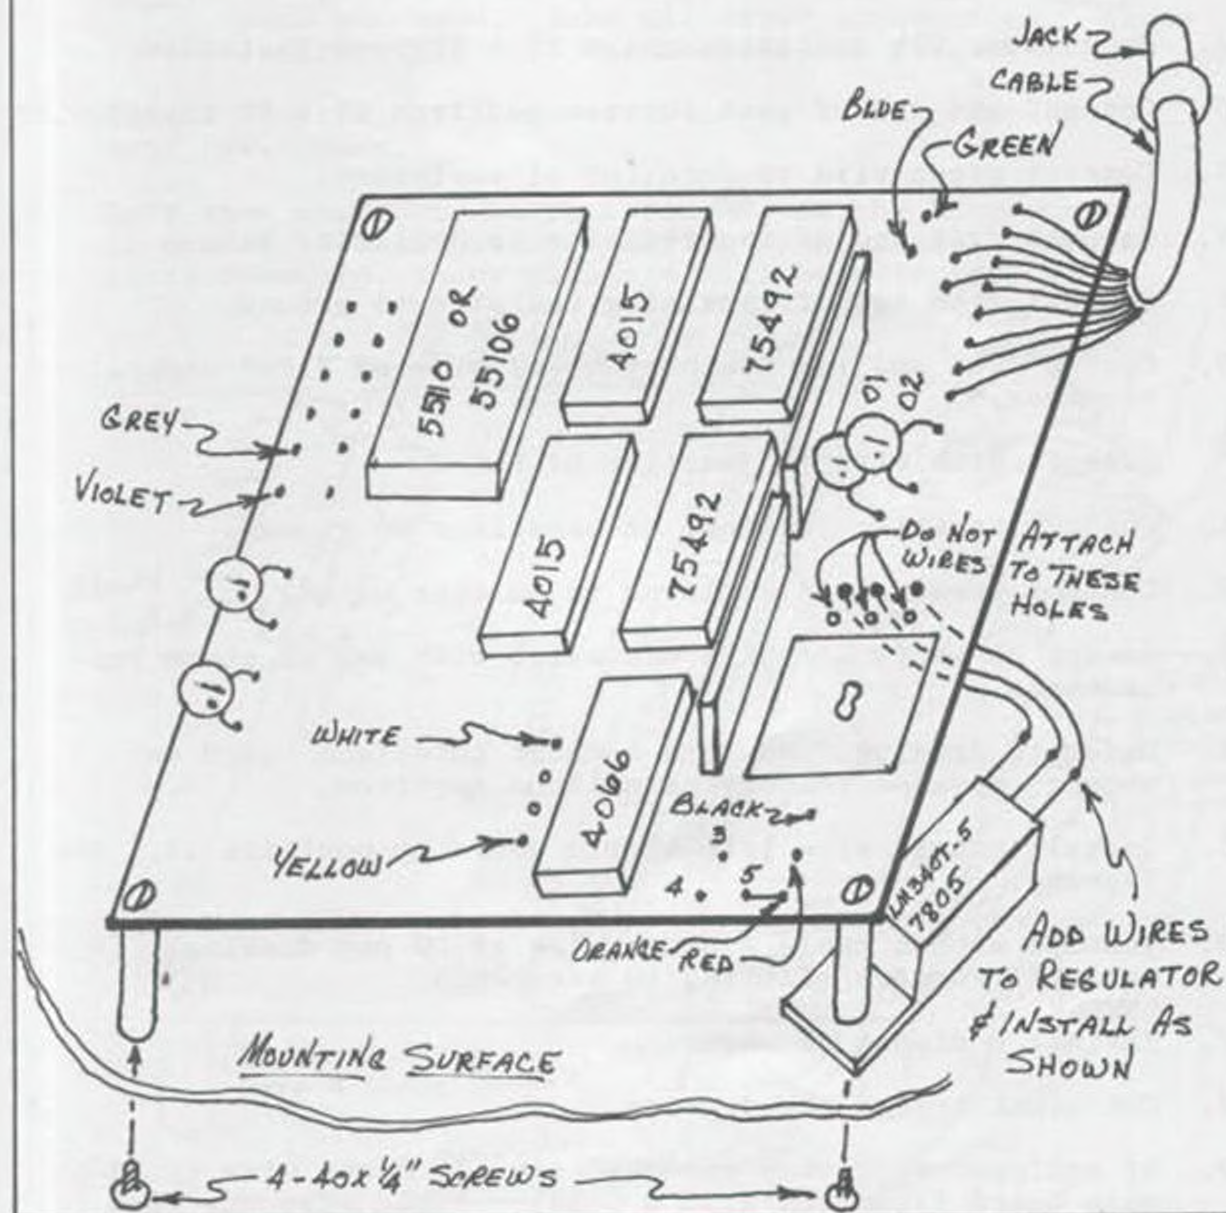 JACK
CABLE
BLUE
GREEN
5510 OR
55106
4015
75492
01
02
.1
.1
GREY
VIOLET
4015
75492
DO NOT ATTACH
WIRES TO THESE
HOLES
.1
.1
WHITE
4066
BLACK
YELLOW
3
4
5
ORANGE
RED
LM340T-5
7805
ADD WIRES
TO REGULATOR
& INSTALL AS
SHOWN
MOUNTING SURFACE
4-40x1/4" SCREWS